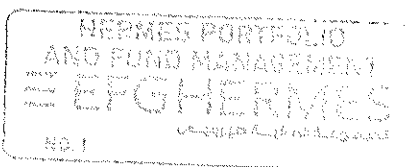 HERMES PORTFOLIO
AND FUND MANAGEMENT
EFGHERMES
NO. 1